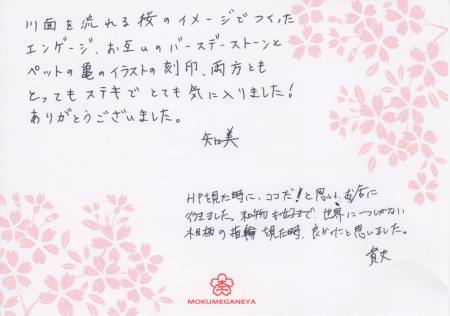 川面を流れる桜のイメージでつくった
エンゲージ、お互いのバースデーストーンと
ペットの亀のイラストの刻印、両方とも
とってもステキで とても気に入りました!
ありがとうございました。
知美
HP現た時に、ココだ!と思い、お店に
行きました。和物も好きで、世界に一つしかない
木目柄の指輪 現た時、良かったと思いました。
貴史
MOKUMEGANEYA